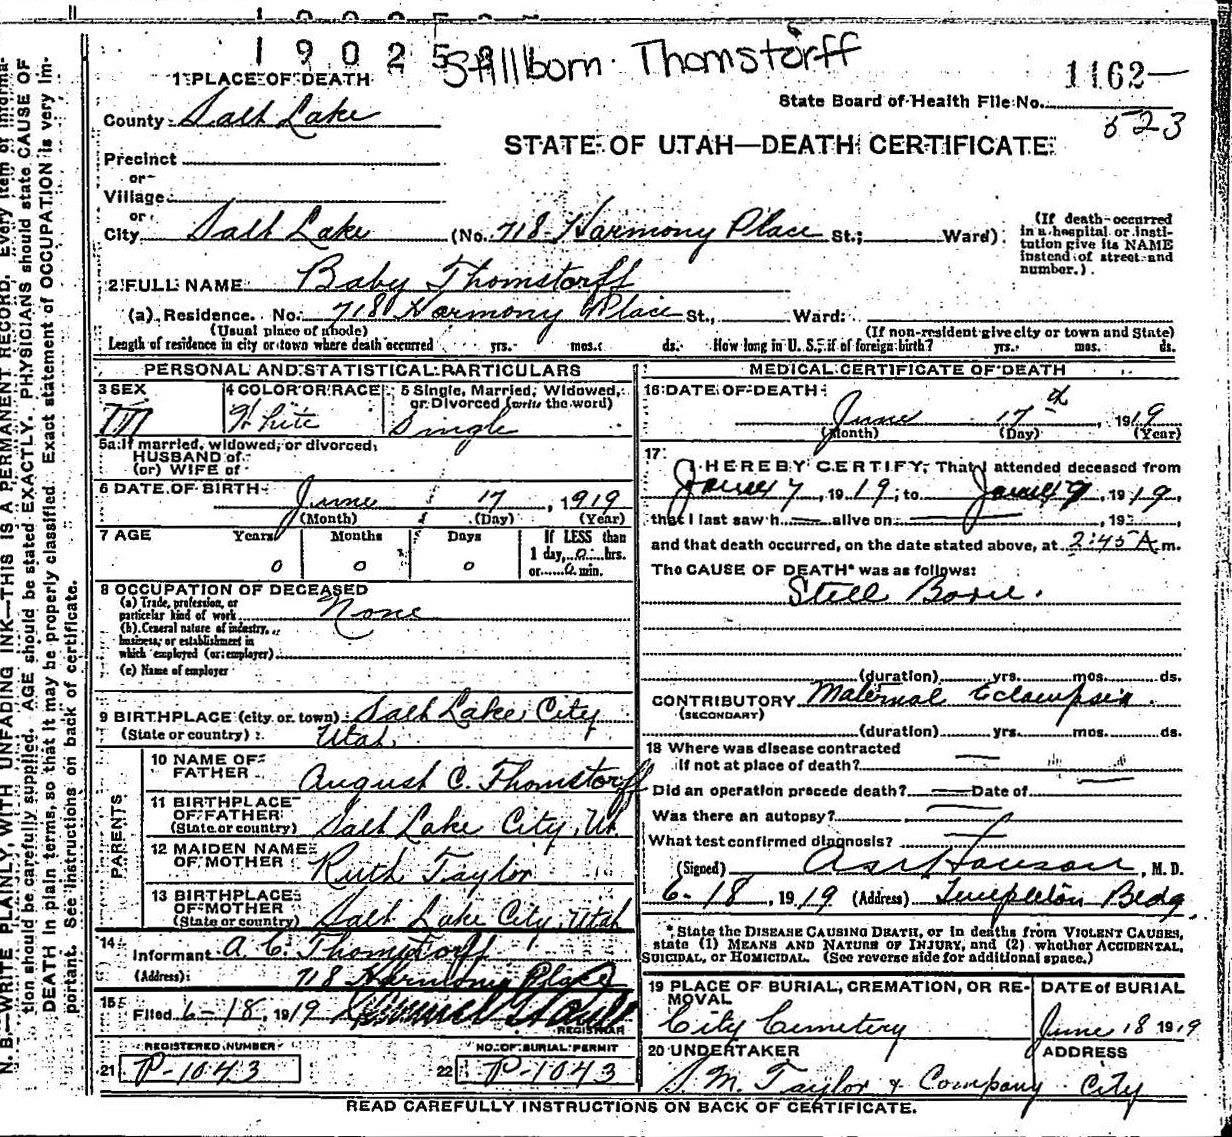 190252
Stillborn Thomstorff
1162—
State Board of Health File No.
523
1 PLACE OF DEATH
County Salt Lake
STATE OF UTAH—DEATH CERTIFICATE
Precinct
or
Village
or
City Salt Lake (No. 718 Harmony Place St.; Ward)
(If death occurred in a hospital or institution give its NAME instead of street and number.)
2 FULL NAME Baby Thomstorff
(a) Residence. No. 718 Harmony Place St., Ward:
(Usual place of abode) (If non-resident give city or town and State)
Length of residence in city or town where death occurred yrs. mos. ds. How long in U. S., if of foreign birth? yrs. mos. ds.
PERSONAL AND STATISTICAL PARTICULARS
3 SEX 4 COLOR OR RACE 5 Single, Married, Widowed, or Divorced (write the word)
M White Single
5a If married, widowed, or divorced,
HUSBAND of
(or) WIFE of
6 DATE OF BIRTH June 17, 1919
(Month) (Day) (Year)
7 AGE Years Months Days If LESS than
0 0 0 1 day, 0 hrs.
or 0 min.
8 OCCUPATION OF DECEASED
(a) Trade, profession, or
particular kind of work None
(b) General nature of industry,
business, or establishment in
which employed (or employer)
(c) Name of employer
9 BIRTHPLACE (city or town) Salt Lake City
(State or country) Utah
PARENTS
10 NAME OF FATHER August C. Thomstorff
11 BIRTHPLACE OF FATHER (State or country) Salt Lake City, Ut
12 MAIDEN NAME OF MOTHER Ruth Taylor
13 BIRTHPLACE OF MOTHER (State or country) Salt Lake City, Utah
14 Informant A. C. Thomstorff
(Address) 718 Harmony Place
15 Filed 6-18, 1919
REGISTRAR
REGISTERED NUMBER NO. OF BURIAL PERMIT
21 P-1043 22 P-1043
MEDICAL CERTIFICATE OF DEATH
16 DATE OF DEATH
June 17th, 1919
(Month) (Day) (Year)
17 I HEREBY CERTIFY, That I attended deceased from
, 1919, to , 1919,
that I last saw h — alive on — , 19 ,
and that death occurred, on the date stated above, at 2:45 A m.
The CAUSE OF DEATH* was as follows:
Still Born.
(duration) yrs. mos. ds.
CONTRIBUTORY Maternal Eclampsia.
(SECONDARY)
(duration) yrs. mos. ds.
18 Where was disease contracted
If not at place of death? —
Did an operation precede death? — Date of —
Was there an autopsy? —
What test confirmed diagnosis? —
(Signed) , M. D.
6-18, 1919 (Address) Templeton Bldg.
* State the DISEASE CAUSING DEATH, or in deaths from VIOLENT CAUSES,
state (1) MEANS AND NATURE OF INJURY, and (2) whether ACCIDENTAL,
SUICIDAL, or HOMICIDAL. (See reverse side for additional space.)
19 PLACE OF BURIAL, CREMATION, OR REMOVAL DATE of BURIAL
City Cemetery June 18 1919
20 UNDERTAKER ADDRESS
S. M. Taylor & Company City
READ CAREFULLY INSTRUCTIONS ON BACK OF CERTIFICATE.
N. B.—WRITE PLAINLY, WITH UNFADING INK—THIS IS A PERMANENT RECORD. Every item of informa-
tion should be carefully supplied. AGE should be stated EXACTLY. PHYSICIANS should state CAUSE OF
DEATH in plain terms, so that it may be properly classified. Exact statement of OCCUPATION is very im-
portant. See instructions on back of certificate.